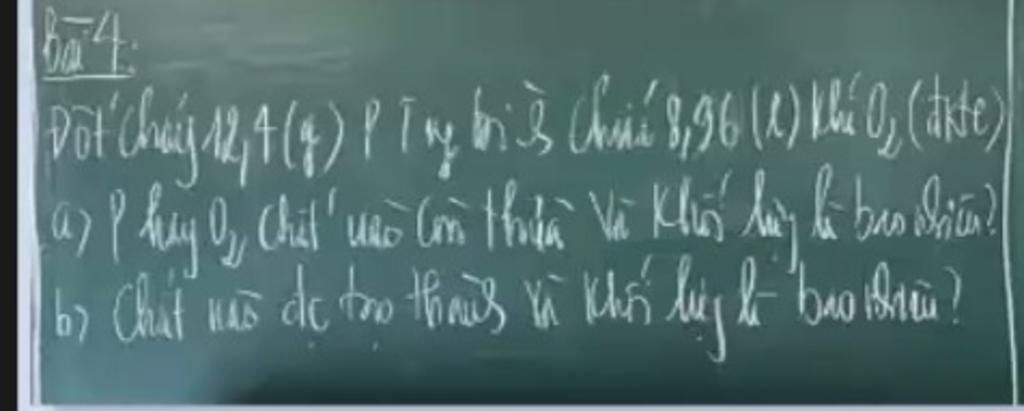 Bài 4:
Đốt cháy 12,4 (g) P trong bình chứa 8,96 (l) khí O₂ (đktc)
a) P hay O₂ chất nào còn thừa và khối lượng là bao nhiêu?
b) Chất nào đc tạo thành và khối lượng là bao nhiêu?